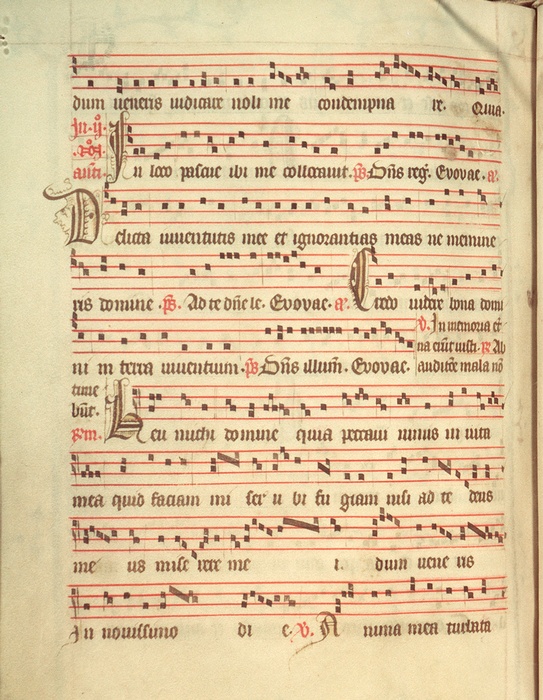 dum veneris iudicare noli me condempna re. Quia.
In .ij. n loco pascue ibi me collocauit. ps Dns reg. Evovae. a.
anti
Delicta iuuentutis mee et ignorantias meas ne memine
ris domine. ps. Ad te dne le. Evovae. a. Credo videre bona domi
ni in terra viuentium. ps Dns illum. Evovae.
V. In memoria et
na erit iusti. R Ab
auditione mala nō
time
būt.
Heu michi domine quia peccaui nimis in vita
mea quid faciam mi ser u bi fu giam nisi ad te deus
me us mise rere me i. dum vene ris
In nouissimo di e. V. A nima mea turbata